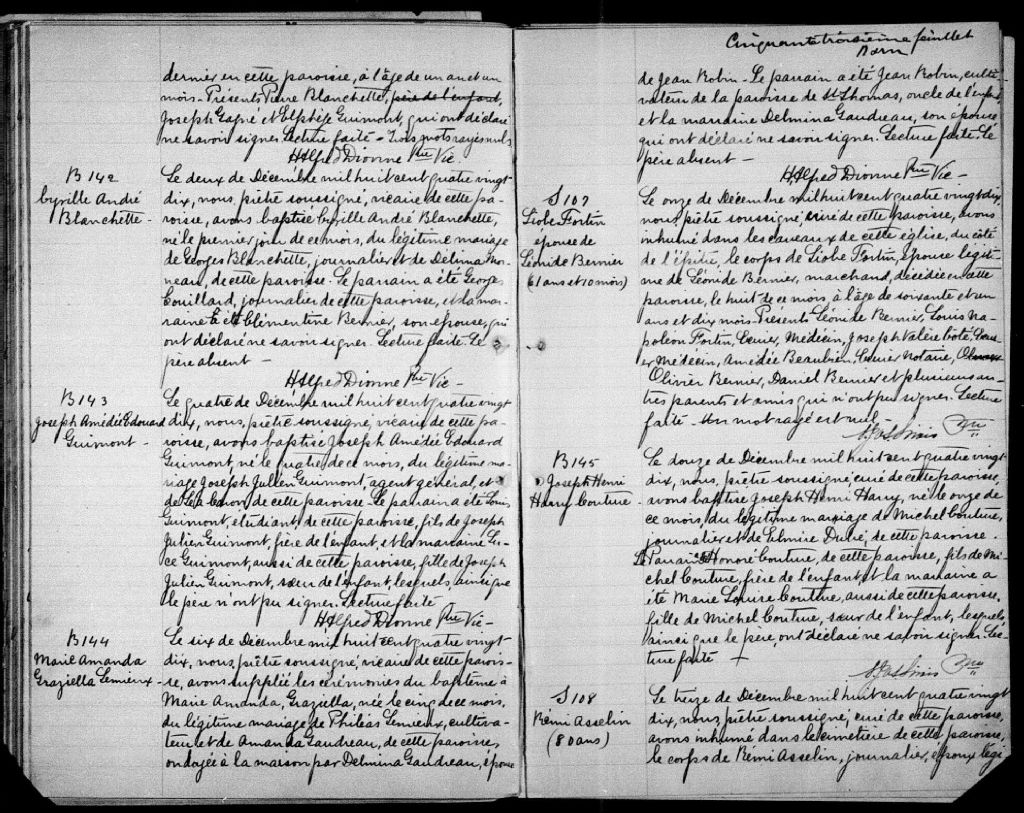 dernier en cette paroisse, à l'âge de un an et un
mois. Présents Pierre Blanchette, père de l'enfant,
Joseph Gagné et Elphège Guimont, qui ont déclaré
ne savoir signer. Lecture faite - Trois mots rayés nuls
HAlfred Dionne Ptre Vic.
B 142
Cyrille André
Blanchette -
Le deux de Décembre mil huit cent quatre vingt
dix, nous, prêtre soussigné, vicaire de cette pa-
roisse, avons baptisé Cyrille André Blanchette,
né le premier jour de ce mois, du légitime mariage
de Georges Blanchette, journalier et de Delima Mo-
neau, de cette paroisse. Le parrain a été George
Couillard, journalier de cette paroisse, et la mar-
raine Clémentine Bernier, son épouse, qui
ont déclaré ne savoir signer. Lecture faite. Le
père absent -
HAlfred Dionne Ptre Vic -
B 143
Joseph Amédé Edouard
Guimont -
Le quatre de Décembre mil huit cent quatre vingt
dix, nous, prêtre soussigné, vicaire de cette pa-
roisse, avons baptisé Joseph Amédé Edouard
Guimont, né le quatre de ce mois, du légitime ma-
riage Joseph Julien Guimont, agent général, et
de Léa Caron, de cette paroisse. Le parrain a été Louis
Guimont, étudiant, de cette paroisse, fils de Joseph
Julien Guimont, frère de l'enfant, et la marraine Lu-
ce Guimont, aussi de cette paroisse, fille de Joseph
Julien Guimont, sœur de l'enfant, lesquels, ainsi que
le père n'ont pu signer. Lecture faite
HAlfred Dionne Ptre Vic -
B 144
Marie Amanda
Graziella Lemieux -
Le six de Décembre mil huit cent quatre vingt-
dix, nous, prêtre soussigné, vicaire de cette parois-
se, avons suppléé les cérémonies du baptême à
Marie Amanda, Graziella, née le cinq de ce mois,
du légitime mariage de Philéas Lemieux, cultiva-
teur, et de Amanda Gaudreau, de cette paroisse,
ondoyée à la maison par Delmina Gaudreau, épouse
Cinquante troisième feuillet
de Jean Robin - Le parrain a été Jean Robin, culti-
vateur de la paroisse de St. Thomas, oncle de l'enfant,
et la marraine Delmina Gaudreau, son épouse,
qui ont déclaré ne savoir signer. Lecture faite. Le
père absent -
HAlfred Dionne Ptre Vic -
S 107
Liobe Fortin
épouse de
Léonide Bernier
(61 ans et 10 mois)
Le onze de Décembre mil huit cent quatre vingt dix,
nous, prêtre soussigné, curé de cette paroisse, avons
inhumé dans les caveaux de cette église, du côté
de l'épître, le corps de Liobe Fortin, épouse légiti-
me de Léonide Bernier, marchand, décédée en cette
paroisse, le huit de ce mois, à l'âge de soixante et un
ans et dix mois. Présents Léonide Bernier, Louis Na-
poléon Fortin, Ecuier, Médecin, Joseph Valère Côté, Ecui-
er Médecin, Amédée Beaubien, Ecuier Notaire,
Olivier Bernier, Daniel Bernier et plusieurs au-
tres parents et amis qui n'ont pu signer. Lecture
faite - Un mot rayé est nul -
Ptre
B 145
Joseph Henri
Harry Couture -
Le douze de Décembre mil huit cent quatre vingt
dix, nous, prêtre soussigné, curé de cette paroisse,
avons baptisé Joseph Henri Harry, né le onze de
ce mois, du légitime mariage de Michel Couture,
journalier et de Elmire Dubé, de cette paroisse.
Le Parrain Honoré Couture, de cette paroisse, fils de Mi-
chel Couture, frère de l'enfant, et la marraine a
été Marie Louise Couture, aussi de cette paroisse,
fille de Michel Couture, sœur de l'enfant, lesquels,
ainsi que le père, ont déclaré ne savoir signer. Lec-
ture faite +
Ptre
S 108
Rémi Asselin
(80 ans)
Le treize de Décembre mil huit cent quatre vingt
dix, nous, prêtre soussigné, curé de cette paroisse,
avons inhumé dans le cimetière de cette paroisse,
le corps de Rémi Asselin, journalier, époux légi